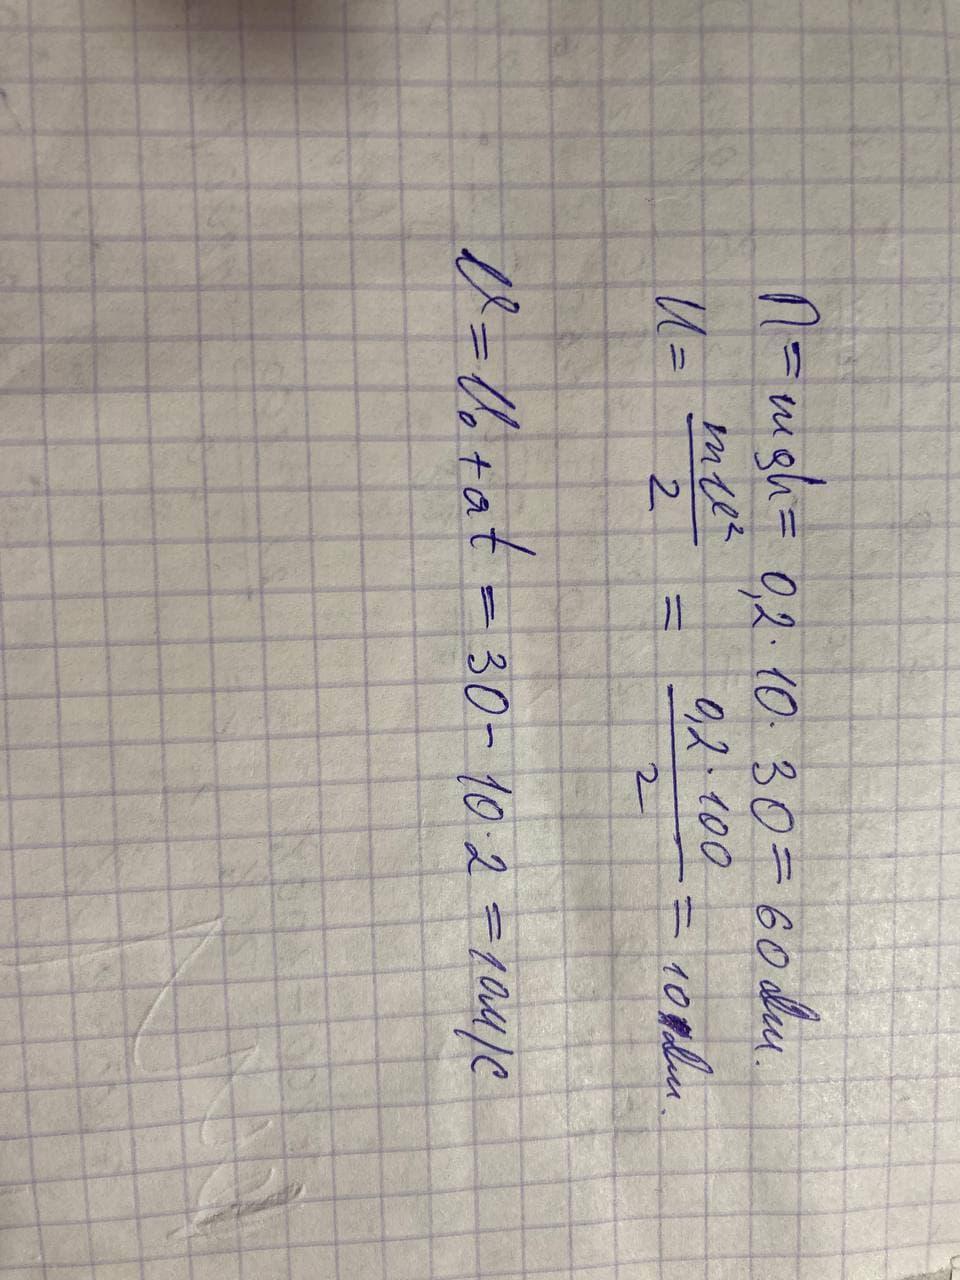 П = mgh = 0,2 · 10 · 30 = 60 Дж.
К = mv²/2 = 0,2 · 100/2 = 10 Дж.
V = V₀ + at = 30 - 10 · 2 = 10 м/с